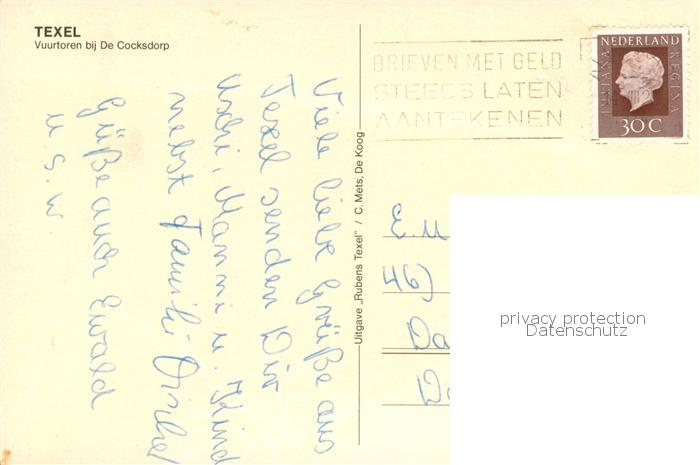 TEXEL
Vuurtoren bij De Cocksdorp
BRIEVEN MET GELD
STEEDS LATEN
AANTEKENEN
NEDERLAND
JULIANA
REGINA
30 C
Viele liebe Grüße aus
Texel senden Dir
Manni u. Kind
nebst Familie
Grüße auch Ewald
u. s. w
Uitgave „Rubens Texel" / C. Mets, De Koog
E. M
46)
Da
privacy protection
Datenschutz